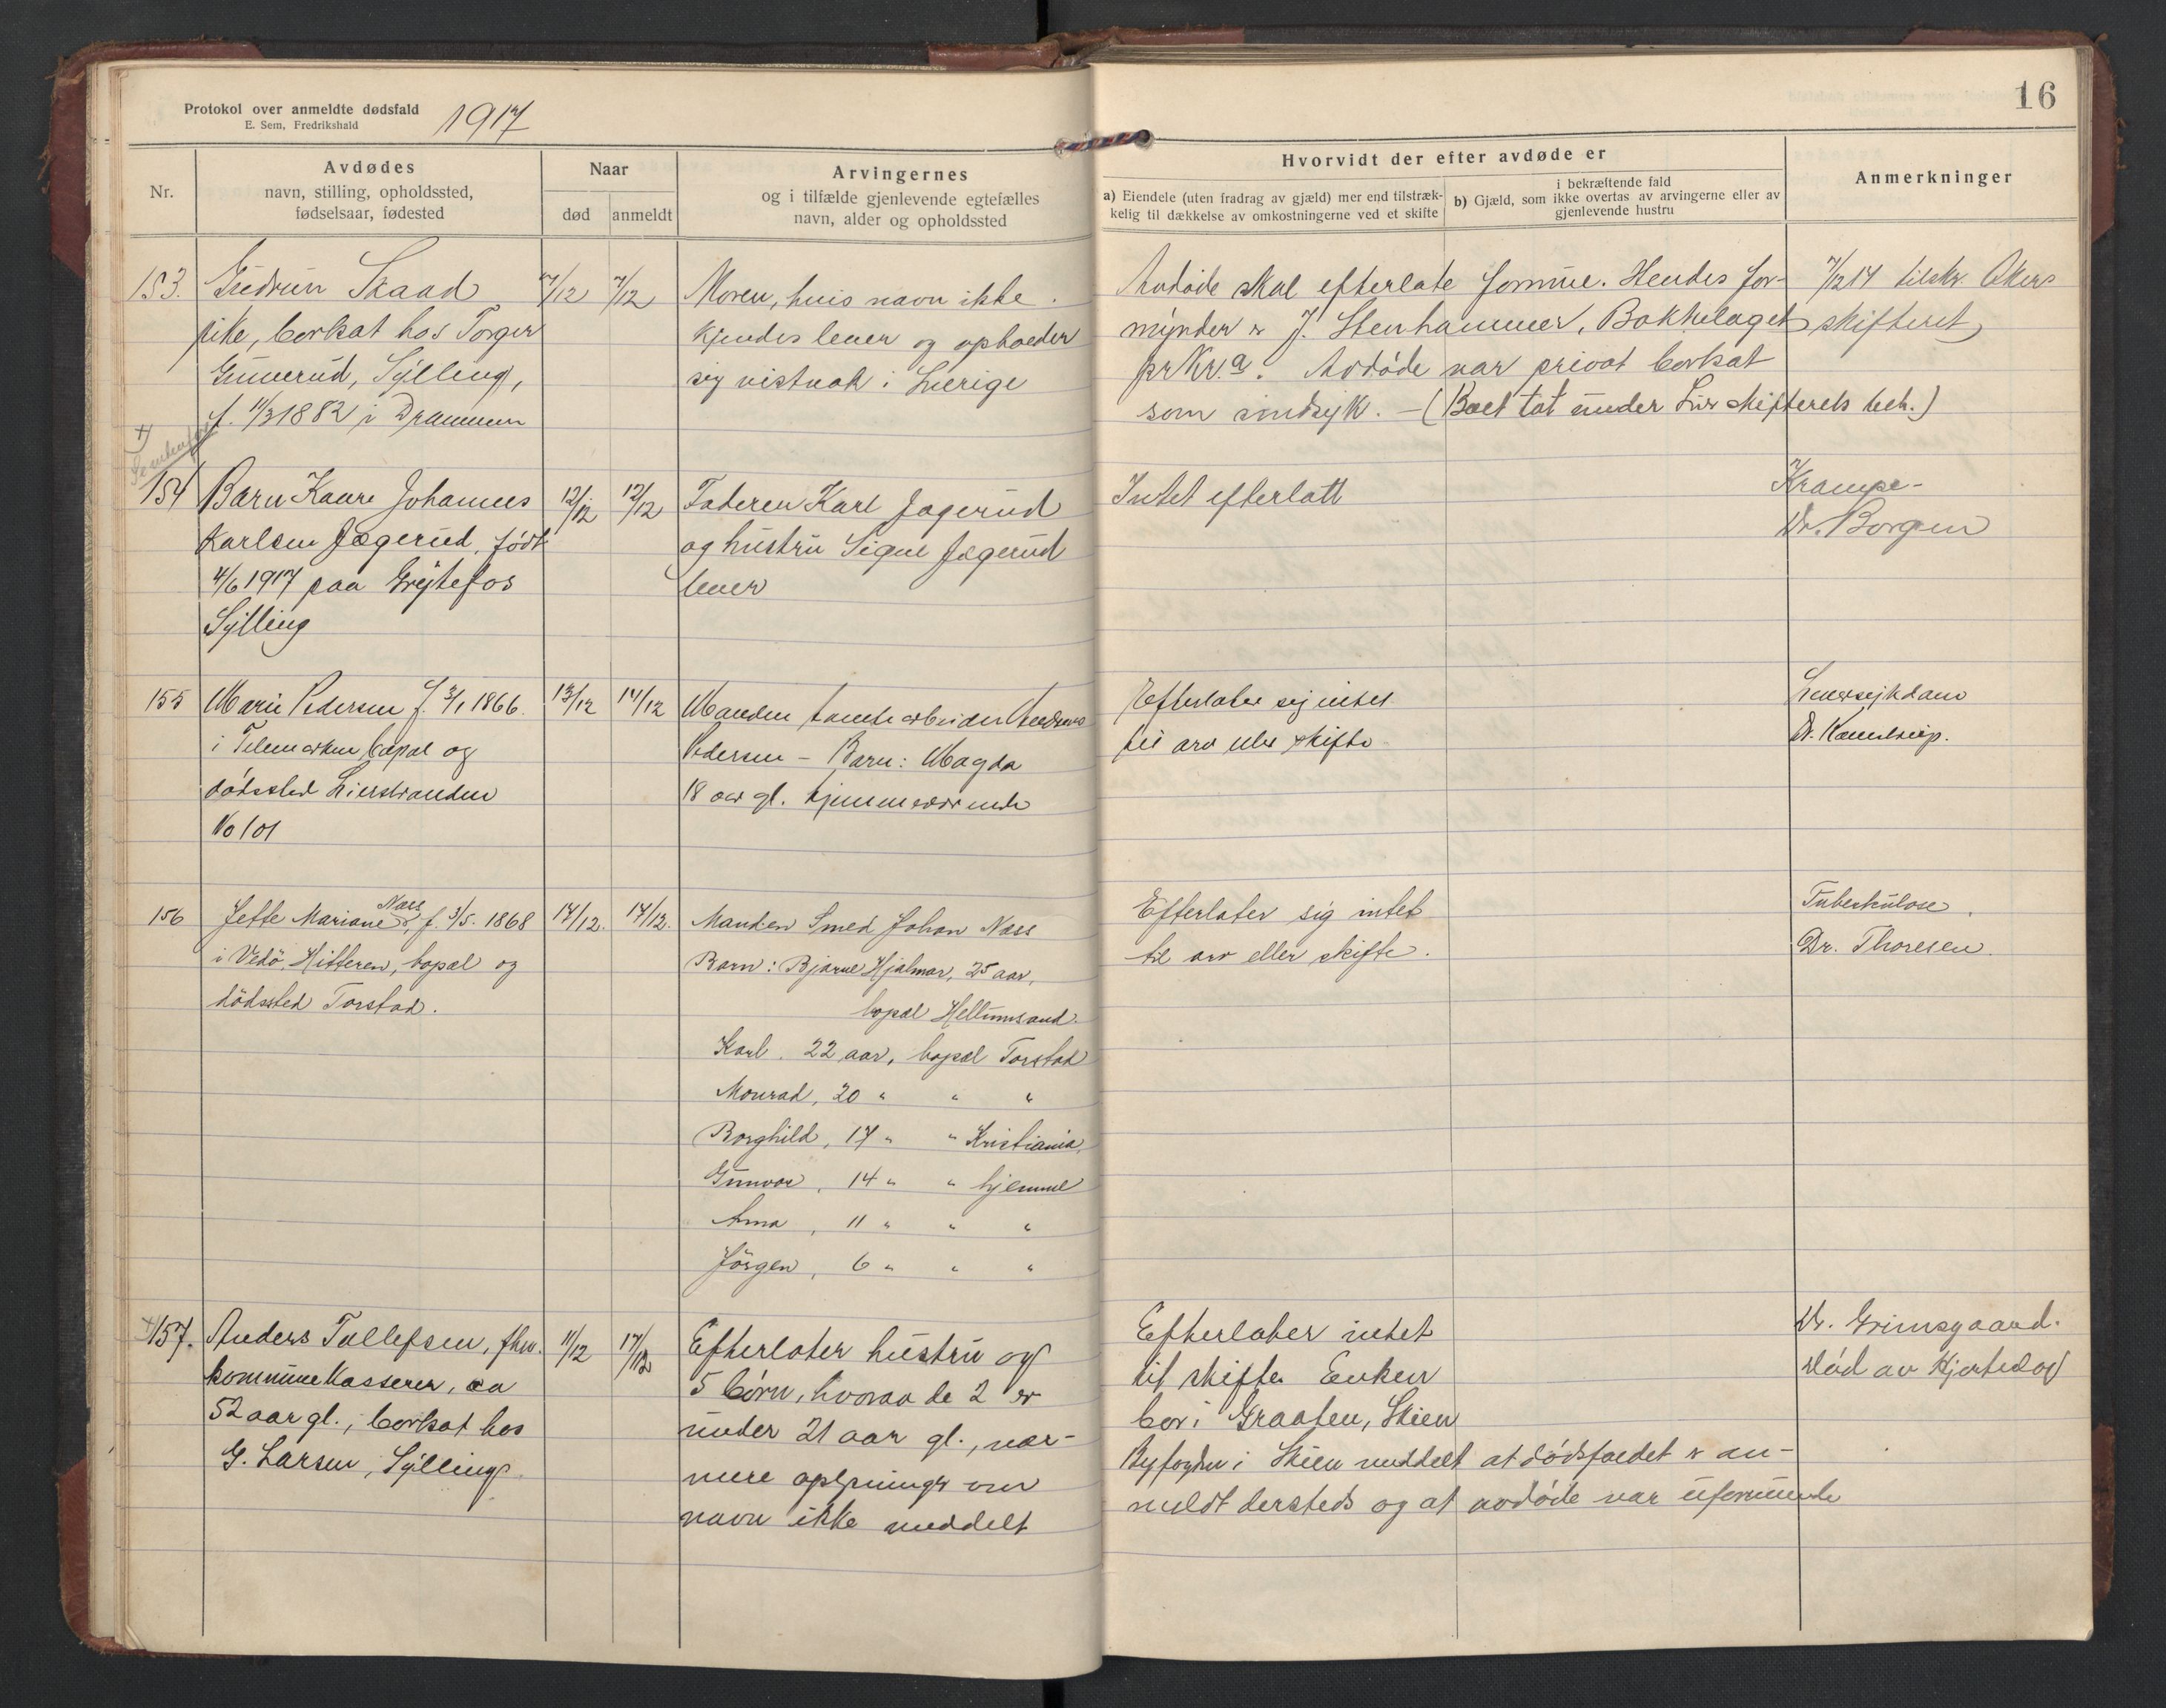 Protokol over anmeldte dødsfald
E. Sem, Fredrikshald
1917
16
Nr.
Avdødes
navn, stilling, opholdssted,
fødselsaar, fødested
Naar
død
anmeldt
Arvingernes
og i tilfælde gjenlevende egtefælles
navn, alder og opholdssted
Hvorvidt der efter avdøde er
a) Eiendele (uten fradrag av gjæld) mer end tilstræk-
kelig til dækkelse av omkostningerne ved et skifte
i bekræftende fald
b) Gjæld, som ikke overtas av arvingerne eller av
gjenlevende hustru
Anmerkninger
153. Gudrun Skaad
pike, bortsat hos Torger
Gunnerud, Sylling,
f. 11/3 1882 i Drammen
7/12 7/12
Moren, hvis navn ikke
kjendes lever og opholder
sig vistnok i Sverige
Avdøde skal efterlate formue. Hendes for-
mynder er J. Stenhammer, Bækkelaget
pr Kr.a. Avdøde var privat bortsat
som sindsyk. – (Boet tat under Lier skifterets beh.)
7/12 17 tilskr. Akers
skifteret
154 Barn Kaare Johannes
Karlsen Jægerud, født
4/6 1917 paa Grøtefos
Sylling
12/12 12/12
Faderen Karl Jagerud
og hustru Signe Jægerud
lever
Intet efterlatt
Krampe-
Dr. Borgen
155 Marie Pedersen f. 3/1 1866
i Telemarken bopæl og
dødssted Lierstranden
No 101
13/12 14/12
Manden tomtearbeider Andreas
Pedersen – Barn: Magda
18 aar gl. hjemmeværende
Efterlater sig intet
til arv eller skifte
Leversykdom
Dr.
156 Jette Mariane Næss, f. 3/5. 1868
i Vedö, Hitteren, bopæl og
dödssted Torstad.
14/12. 17/12.
Manden Smed Johan Næss
Barn: Bjarne Hjalmar, 25 aar,
bopæl Hellumsand.
Karl. 22 aar, bopæl Torstad
Monrad, 20 " " "
Borghild, 17 " " Kristiania,
Gunvor, 14 " " hjemme
Anna, 11 " " "
Jörgen, 6 " " "
Efterlater sig intet
til arv eller skifte.
Tuberkulose.
Dr. Thoresen.
157. Anders Tollefsen, fhv.
kommunekasserer, ca
52 aar gl., bortsat hos
G. Larsen, Sylling
11/12 17/12
Efterlater hustru og
5 børn, hvorav de 2 er
under 21 aar gl., nær-
mere oplysninger om
navn ikke meddelt
Efterlater intet
til skifte. Enken
bor i Graaten, Skien
Byfogden i Skien meddelt at dødsfaldet er an-
meldt dersteds og at avdøde var uformuende
Dr. Grimsgaard.
død av Hjerteslag